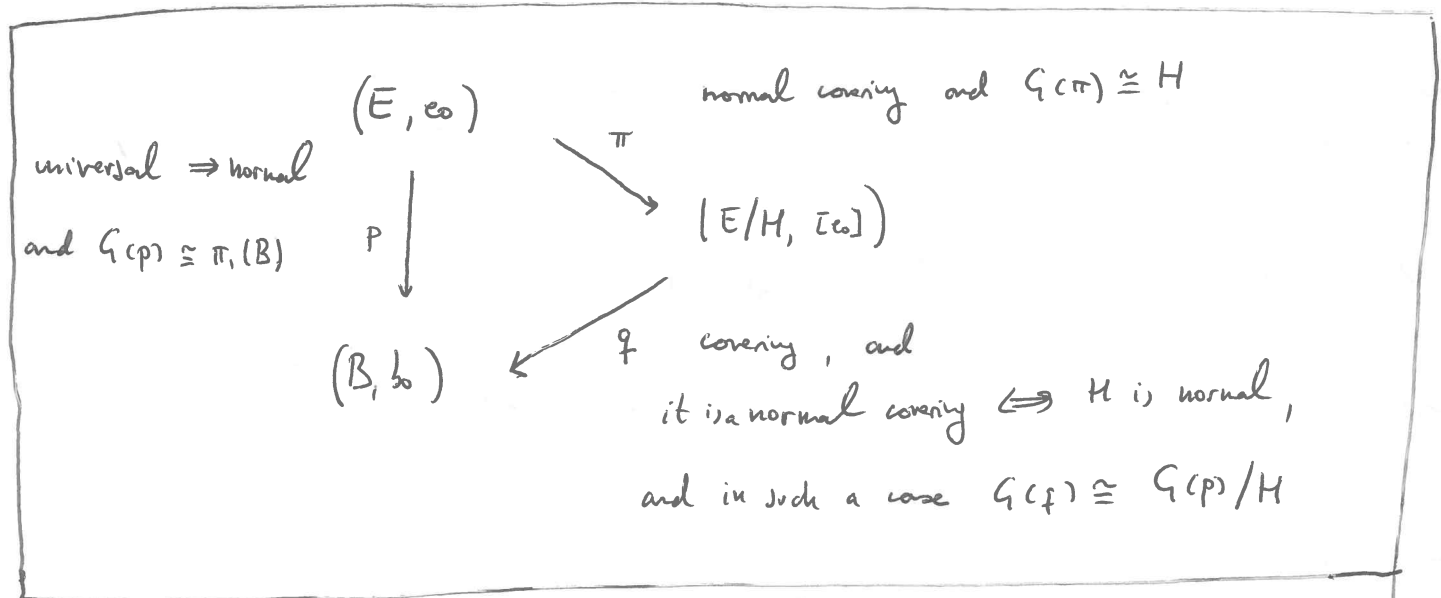 (E, e₀)
normal covering and G(π) ≅ H
π
universal ⇒ normal
and G(p) ≅ π₁(B)
p
(E/H, [e₀])
(B, b₀)
q covering, and
it is a normal covering ⟺ H is normal,
and in such a case G(q) ≅ G(p)/H